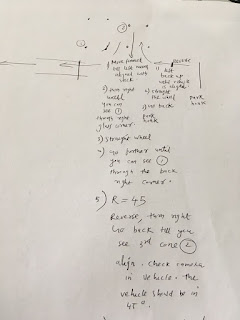 2
1) Move forward
till left mirror
aligned with
clock.
2) turn right
wheel
you can
see 1
through right
glass corner.
3) straighten wheel
4) Go further until
you can see 1
through the back
right corner.
Reverse
left
back up
until vehicle
straight
2) straight
the wheel
go back
park
brake
park
brake
5) R = 45
Reverse, turn right
Go back till you
see 3rd cone 2
align. Check camera
in vehicle. the
vehicle should be in
45°.